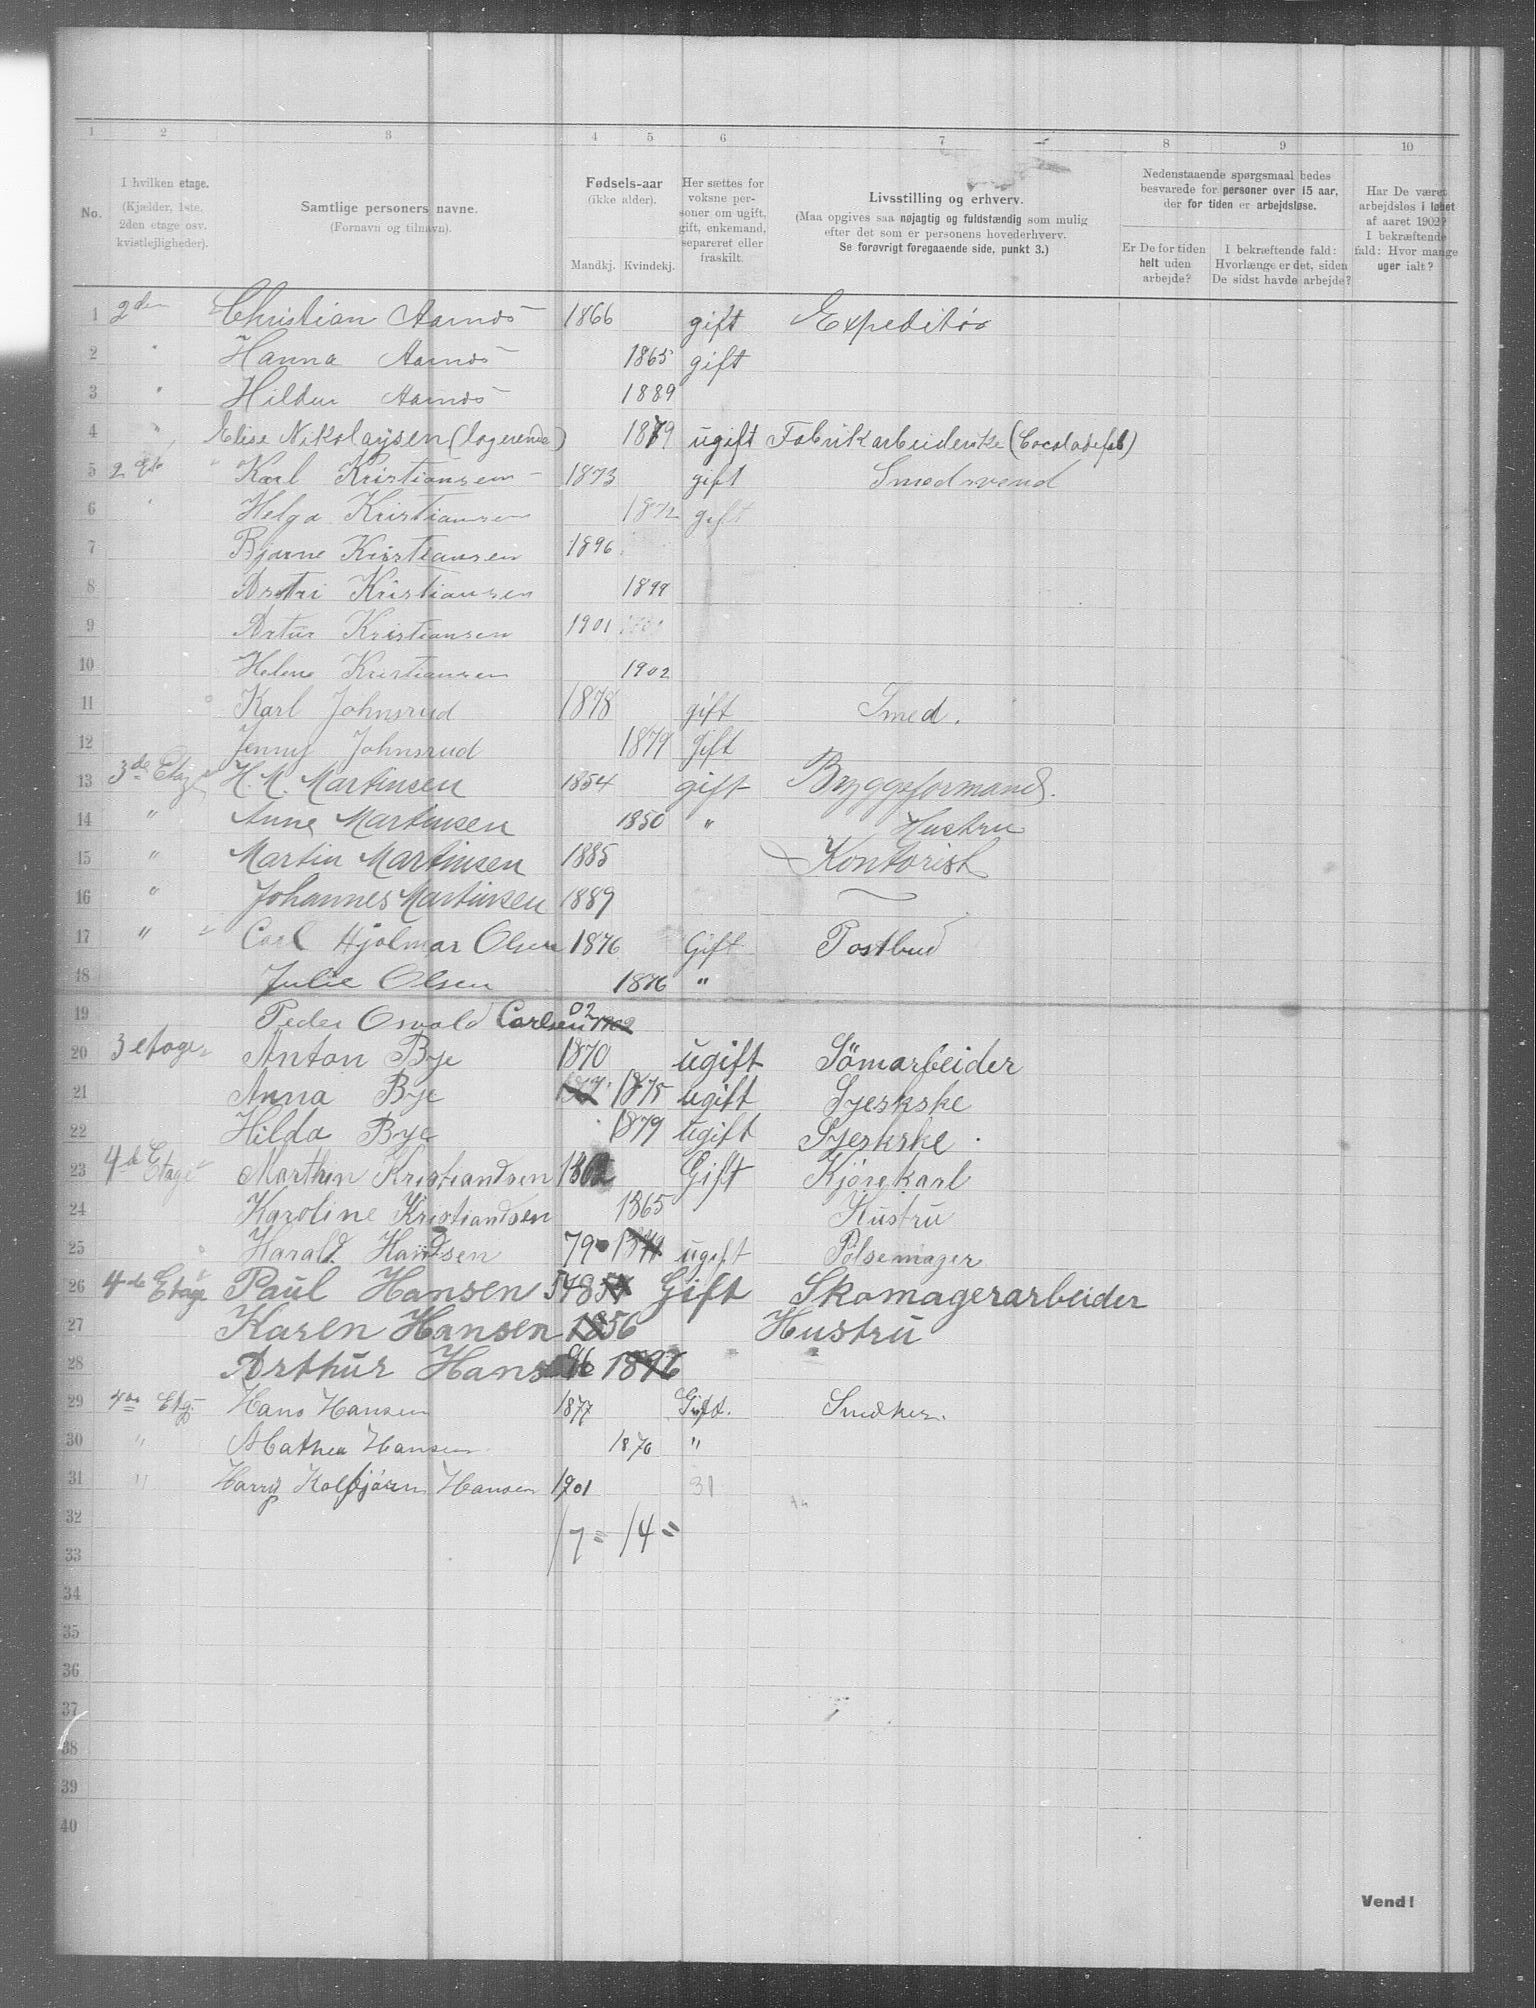 1 2 3 4 5 6 7 8 9 10
No.
I hvilken etage. (Kjælder, 1ste, 2den etage osv. kvistleiligheder).
Samtlige personers navne. (Fornavn og tilnavn).
Fødsels-aar (ikke alder).
Mandkj. Kvindekj.
Her sættes for voksne personer om ugift, gift, enkemand, separeret eller fraskilt.
Livsstilling og erhverv.
(Maa opgives saa nøjagtig og fuldstændig som mulig efter det som er personens hovederhverv.
Se forøvrigt foregaaende side, punkt 3.)
Nedenstaaende spørgsmaal bedes besvarede for personer over 15 aar, der for tiden er arbejdsløse.
Er De for tiden helt uden arbejde?
I bekræftende fald: Hvorlænge er det, siden De sidst havde arbejde?
Har De været arbejdsløs i løbet af aaret 1902? I bekræftende fald: Hvor mange uger ialt?
1 2den Christian Aarnös 1866 gift Expeditör
2 " Hanna Aarnös 1865 gift
3 " Hildur Aarnös 1889
4 " Elise Nikolaysen (logerende) 1879 ugift Fabrikarbeiderske (Cocoladefab)
5 2 Et Karl Kristiansen 1873 gift Smedsvend
6 " Helga Kristiansen 1872 gift
7 Bjarne Kristiansen 1896
8 Astri Kristiansen 1899
9 Artur Kristiansen 1901
10 Helene Kristiansen 1902
11 Karl Johnsrud 1878 gift Smed.
12 Jenny Johnsrud 1879 Gift
13 3de Etage H. M. Martinsen 1854 gift Byggeformand.
14 " Anne Martinsen 1850 " Hustru
15 " Martin Martinsen 1885 Kontorist
16 " Johannes Martinsen 1889
17 " Carl Hjalmar Olsen 1876 Gift Postbud
18 Julie Olsen 1876 "
19 Peder Osvald Carlsen 02 1902
20 3 etage Anton Bye 1870 ugift Sömarbeider
21 Anna Bye 1875 ugift Syeskske
22 Hilda Bye 1879 ugift Syeskske.
23 4de Etage Marthin Kristiandsen Gift Kjørekarl
24 Karoline Kristiandsen 1865 Hustru
25 Harald Handsen 79 ugift Pölsemager
26 4de Etage Paul Hansen 54 Gift Skomagerarbeider
27 Karen Hansen 1856 Hustru
28 Arthur Hans 96 1896
29 4de Etg. Hans Hansen 1877 Gift. Snedker.
30 " Mathea Hansen 1870 "
31 " Harry Kolbjörn Hansen 1901 31
32
33 17 = 14 =
34
35
36
37
38
39
40
Vend!